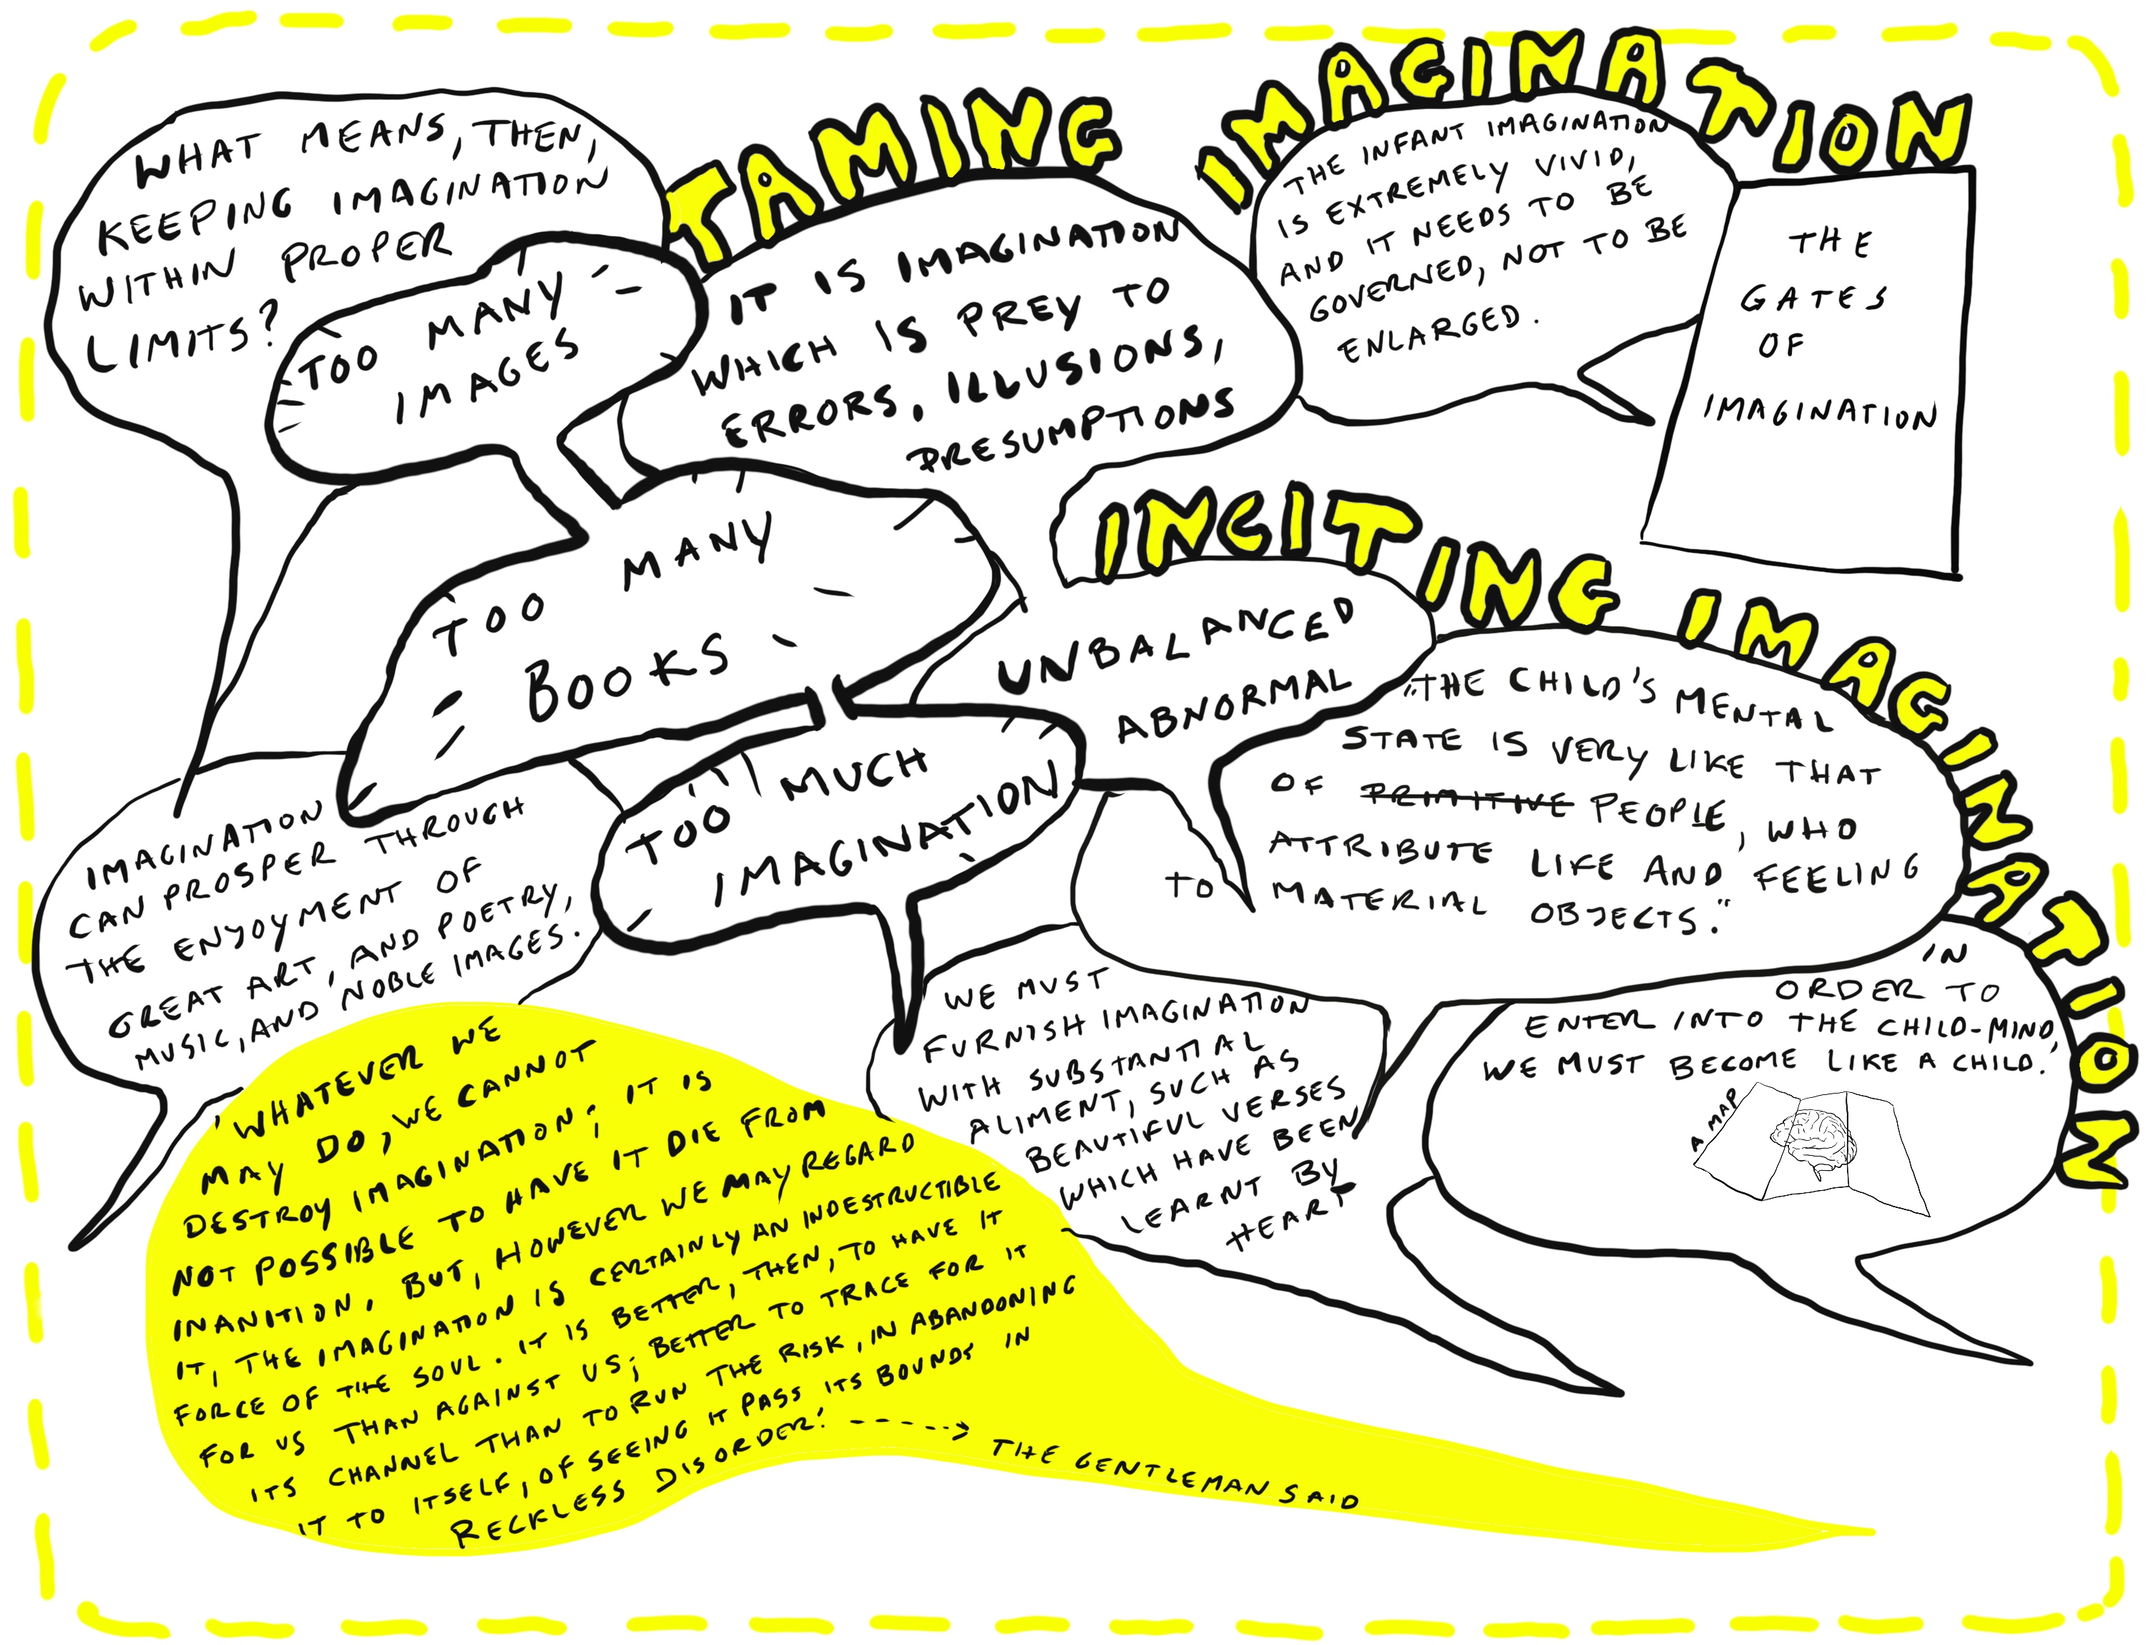 TAMING IMAGINATION
WHAT MEANS, THEN,
KEEPING IMAGINATION
WITHIN PROPER
LIMITS?
TOO MANY
IMAGES
IT IS IMAGINATION
WHICH IS PREY TO
ERRORS, ILLUSIONS,
PRESUMPTIONS
THE INFANT IMAGINATION
IS EXTREMELY VIVID,
AND IT NEEDS TO BE
GOVERNED, NOT TO BE
ENLARGED.
THE
GATES
OF
IMAGINATION
TOO MANY
BOOKS
INCITING IMAGINATION
UNBALANCED
ABNORMAL
TOO MUCH
IMAGINATION
"THE CHILD'S MENTAL
STATE IS VERY LIKE THAT
OF PRIMITIVE PEOPLE, WHO
ATTRIBUTE LIKE AND FEELING
TO MATERIAL OBJECTS."
IMAGINATION
CAN PROSPER THROUGH
THE ENJOYMENT OF
GREAT ART, AND POETRY,
MUSIC, AND NOBLE IMAGES.
WE MUST
FURNISH IMAGINATION
WITH SUBSTANTIAL
ALIMENT, SUCH AS
BEAUTIFUL VERSES
WHICH HAVE BEEN
LEARNT BY
HEART
IN
ORDER TO
ENTER INTO THE CHILD-MIND,
WE MUST BECOME LIKE A CHILD.'
A MAP
'WHATEVER WE
MAY DO, WE CANNOT
DESTROY IMAGINATION; IT IS
NOT POSSIBLE TO HAVE IT DIE FROM
INANITION. BUT, HOWEVER WE MAY REGARD
IT, THE IMAGINATION IS CERTAINLY AN INDESTRUCTIBLE
FORCE OF THE SOUL. IT IS BETTER, THEN, TO HAVE IT
FOR US THAN AGAINST US; BETTER TO TRACE FOR IT
ITS CHANNEL THAN TO RUN THE RISK, IN ABANDONING
IT TO ITSELF, OF SEEING IT PASS ITS BOUNDS IN
RECKLESS DISORDER.'
THE GENTLEMAN SAID